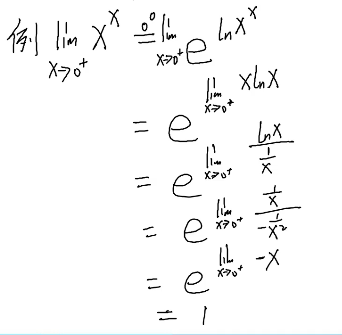 例 lim_{x→0⁺} x^x \overset{0^0}{=} lim_{x→0⁺} e^{ln x^x}
= e^{lim_{x→0⁺} x ln x}
= e^{lim_{x→0⁺} \frac{ln x}{\frac{1}{x}}}
= e^{lim_{x→0⁺} \frac{\frac{1}{x}}{-\frac{1}{x^2}}}
= e^{lim_{x→0⁺} -x}
= 1